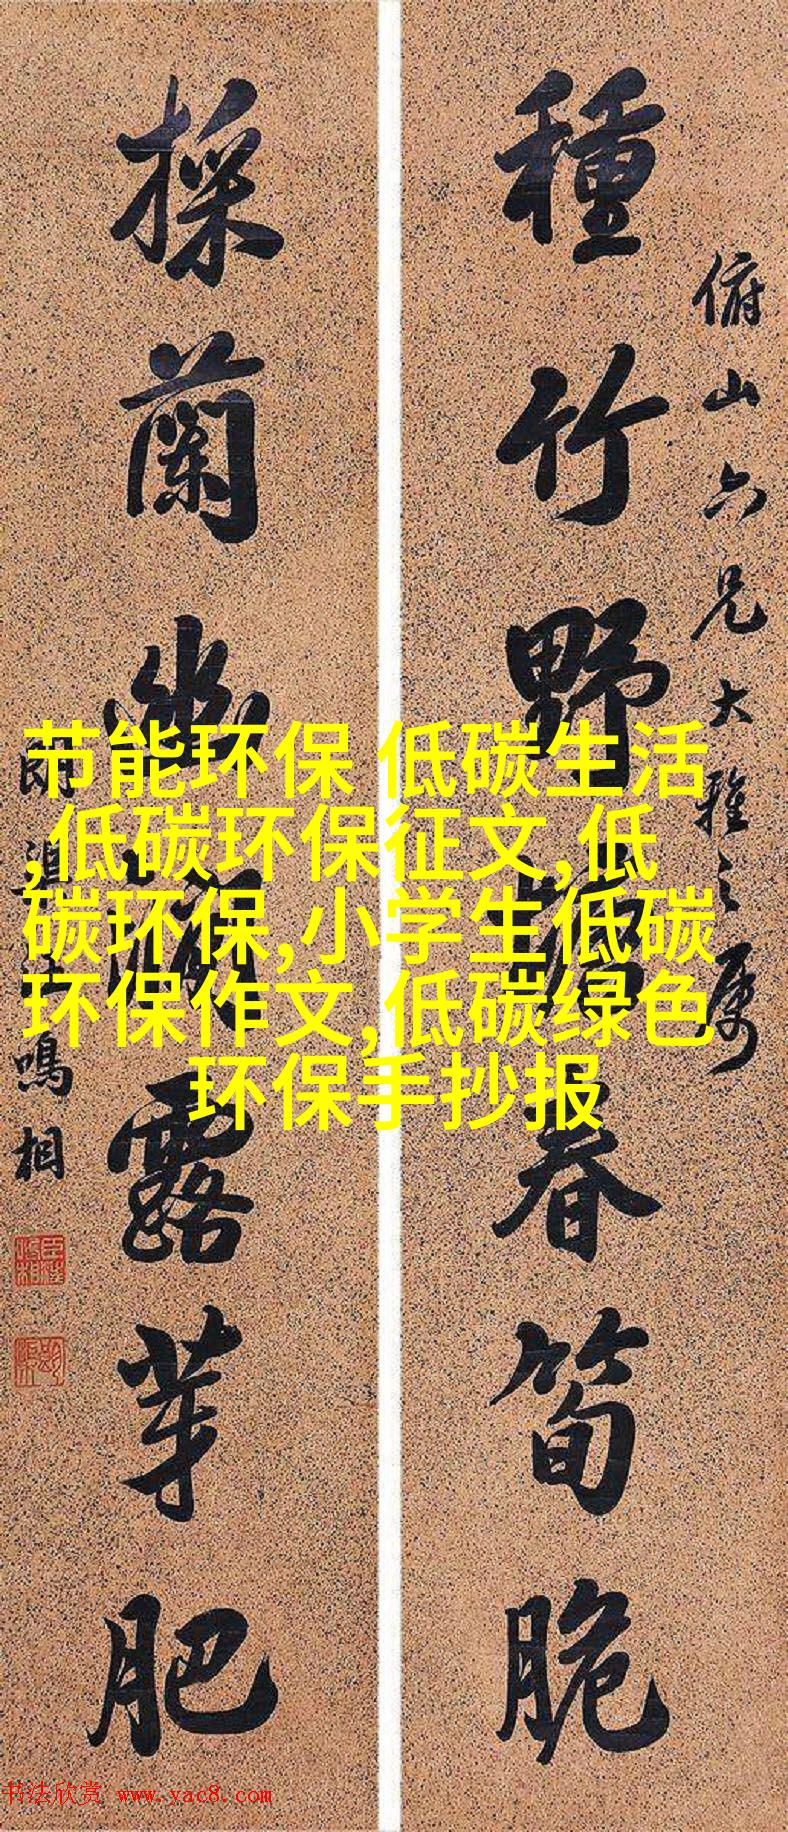 種竹野塢春筍脆
俯山六兄大雅之属
採蘭幽澗露芽肥
鳴相
节能环保 低碳生活
,低碳环保征文,低
碳环保,小学生低碳
环保作文,低碳绿色
环保手抄报
书法欣赏 www.yac8.com